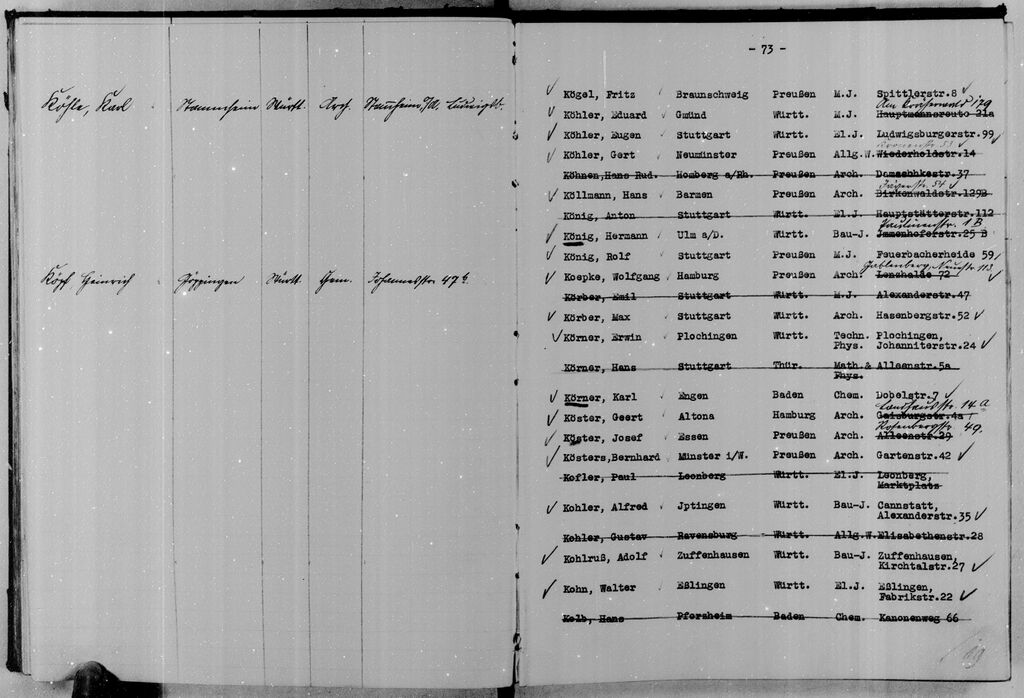 Köhle, Karl Stammheim Württ. Arch. Stammheim O/A. Ludwigsb.
Köpf Heinrich Göppingen Württ. Chem. Johannesstr. 47b.
- 73 -
Kögel, Fritz Braunschweig Preußen M.J. Spittlerstr.8
Am Kräherwald 179
Köhler, Eduard Gmünd Württ. M.J. Hauptmannsreute 21a
Köhler, Eugen Stuttgart Württ. El.J. Ludwigsburgerstr.99
Köhler, Gert Neumünster Preußen Allg.W. Wiederholdstr.14
Köhnen,Hans Rud. Homberg a/Rh. Preußen Arch. Damaschkestr.37
Jägerstr. 54
Köllmann, Hans Barmen Preußen Arch. Birkenwaldstr.129B
König, Anton Stuttgart Württ. El.J. Hauptstätterstr.112
Paulinenstr. 1B
König, Hermann Ulm a/D. Württ. Bau-J. Immenhoferstr.25 B
König, Rolf Stuttgart Preußen M.J. Feuerbacherheide 59
Gablenberg, Neuestr 113
Koepke, Wolfgang Hamburg Preußen Arch. Lenzhalde 72
Körber, Emil Stuttgart Württ. M.J. Alexanderstr.47
Körber, Max Stuttgart Württ. Arch. Hasenbergstr.52
Körner, Erwin Plochingen Württ. Techn. Plochingen,
Phys. Johanniterstr.24
Körner, Hans Stuttgart Thür. Math.& Alleenstr.5a
Phys.
Körner, Karl Engen Baden Chem. Dobelstr.7
Landhausstr. 14a
Köster, Geert Altona Hamburg Arch. Gaisburgstr.4a
Rosenbergstr. 49.
Köster, Josef Essen Preußen Arch. Alleenstr.29
Kösters,Bernhard Münster i/W. Preußen Arch. Gartenstr.42
Kofler, Paul Leonberg Württ. El.J. Leonberg,
Marktplatz
Kohler, Alfred Jptingen Württ. Bau-J. Cannstatt,
Alexanderstr.35
Kohler, Gustav Ravensburg Württ. Allg.W. Elisabethenstr.28
Kohlruß, Adolf Zuffenhausen Württ. Bau-J. Zuffenhausen,
Kirchtalstr.27
Kohn, Walter Eßlingen Württ. El.J. Eßlingen,
Fabrikstr.22
Kolb, Hans Pforzheim Baden Chem. Kanonenweg 66